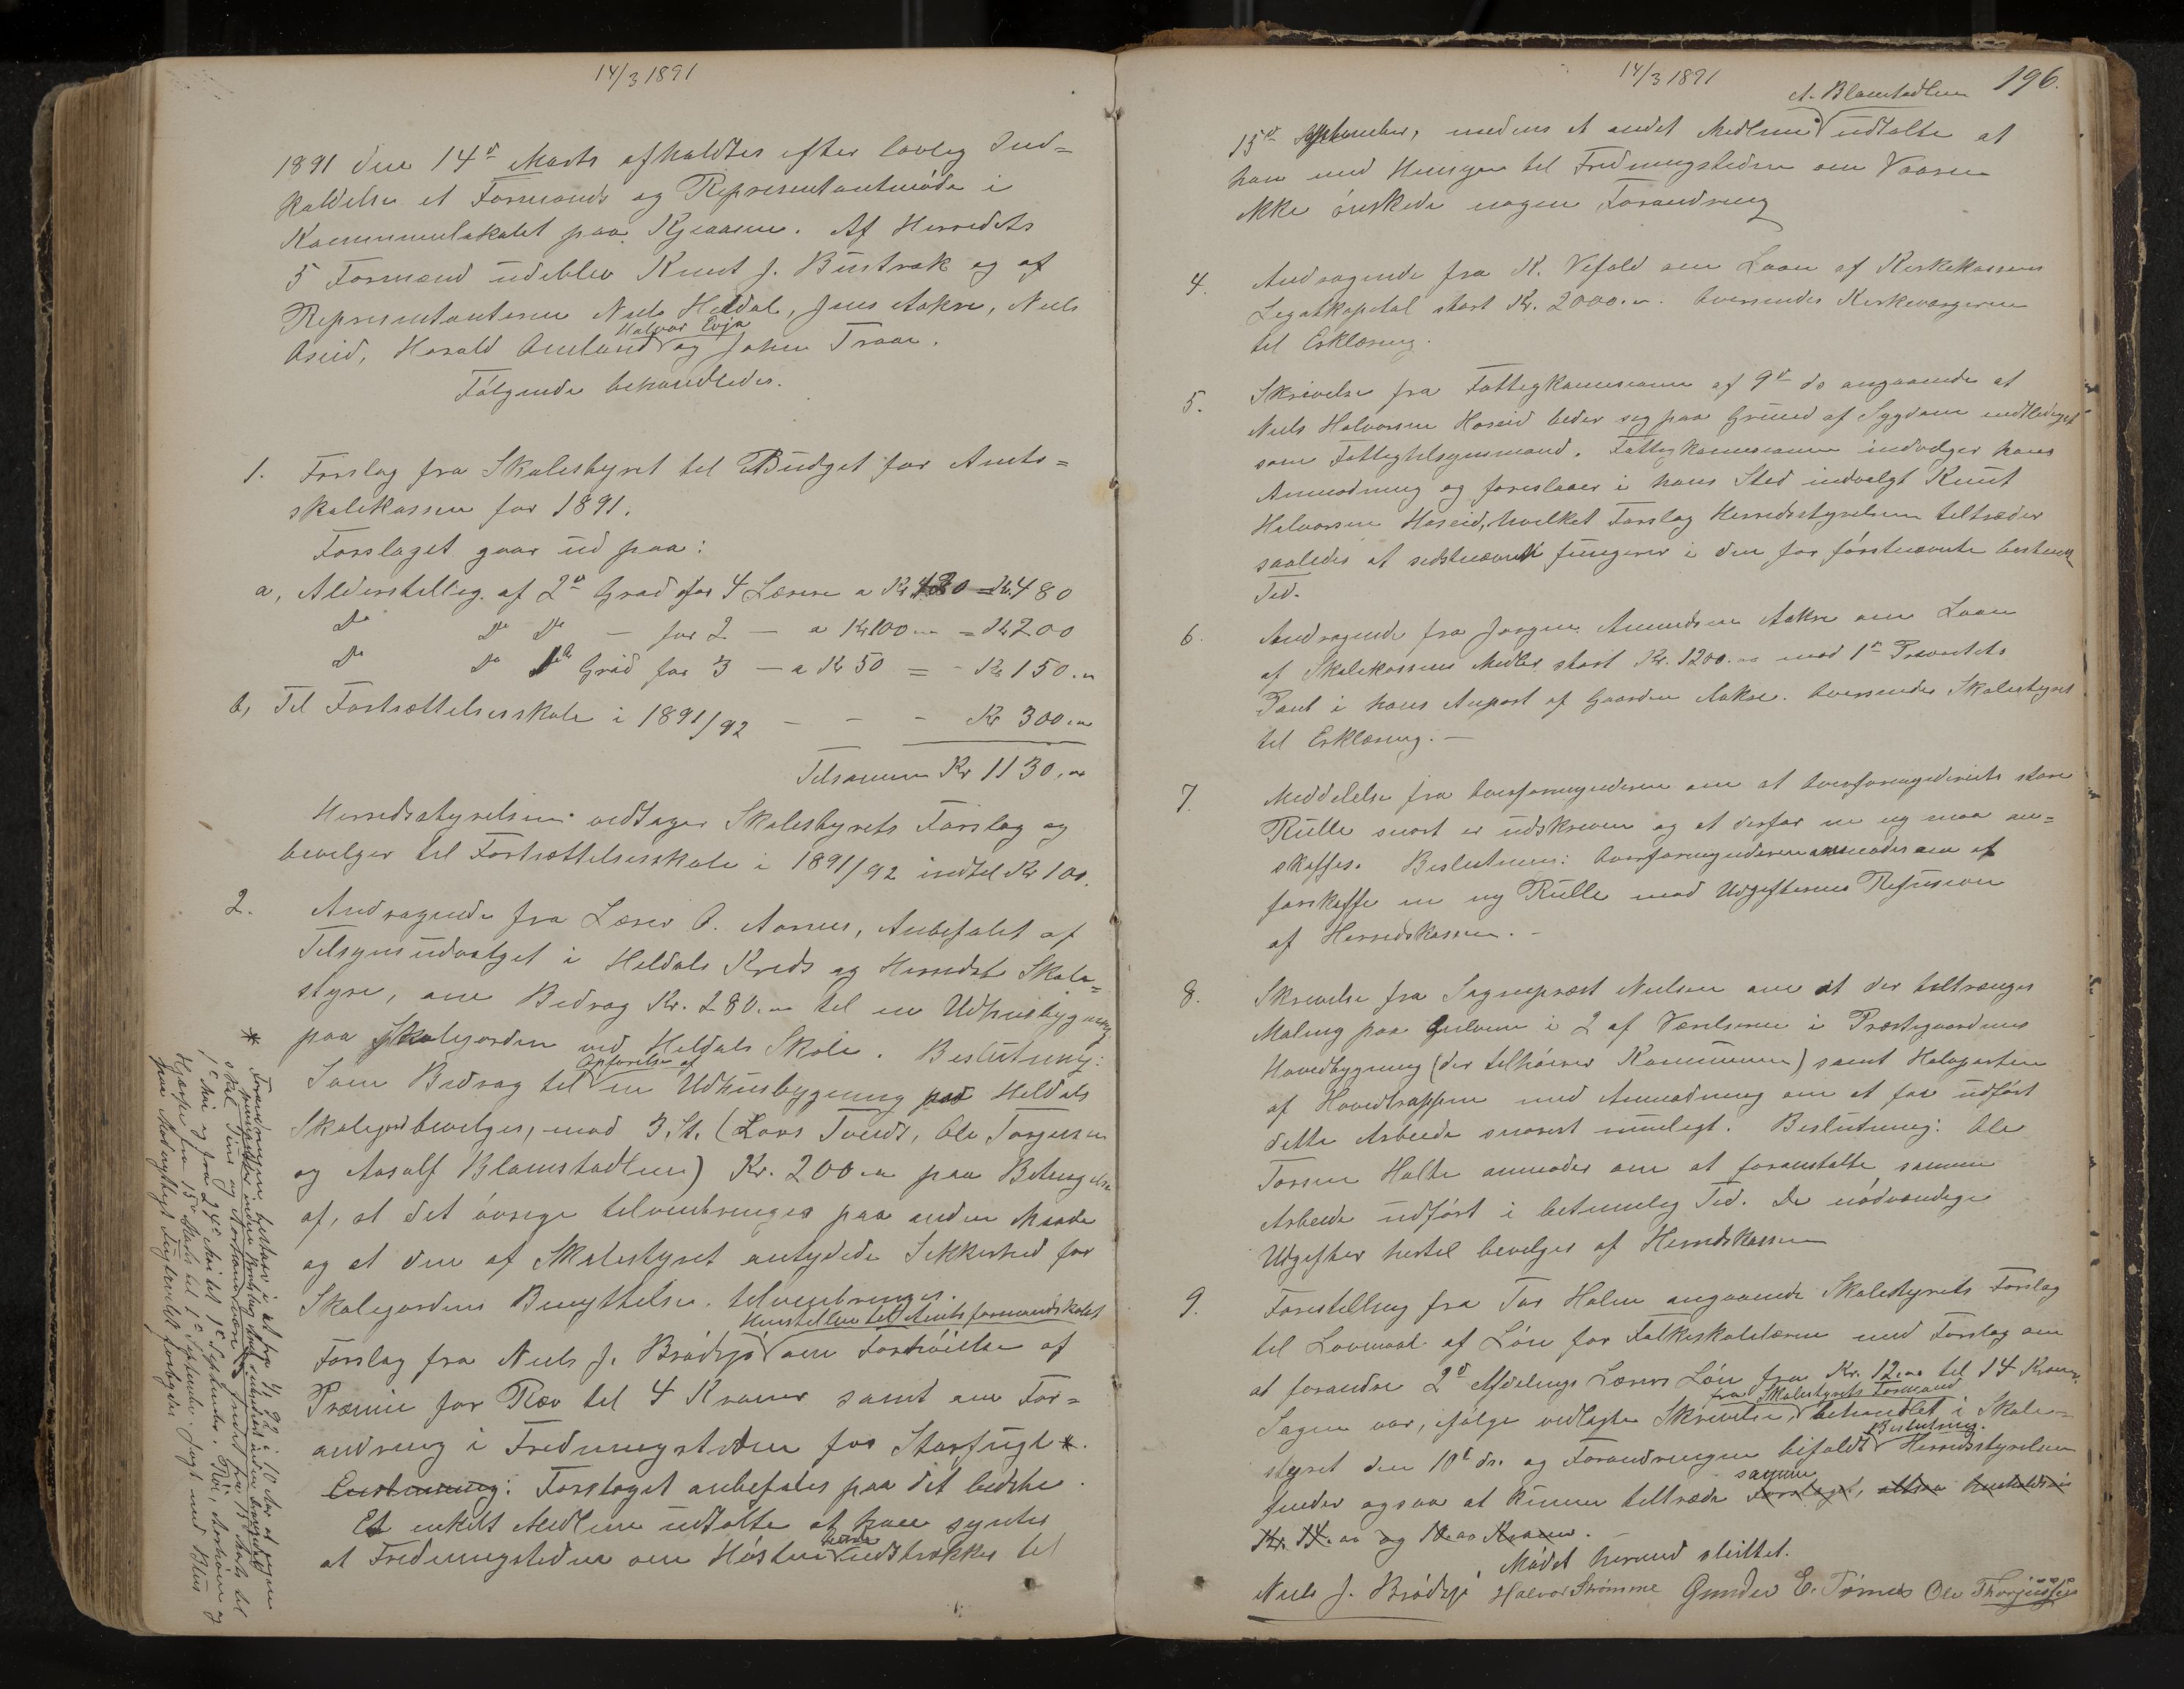 14/3 1891
1891 den 14de Marts afholdtes efter lovlig Ind=
kaldelse et Formands og Representantmøde i
Kommunelokalet paa Kjeaasen. Af Herredets
5 Formænd udeblev Knut J. Bustrak og af
Representanterne Niels Heldal, Jens Aakre, Niels
Halvor Evja
Oseid, Harald Omlund og Johan Traae.
Følgende behandledes.
1. Forslag fra Skolestyret til Budget for Amts=
skolekassen for 1891.
Forslaget gaar ud paa:
a, Alderstillæg af 2den Grad for 4 Lærere a Kr 120 = Kr 480
Do Do Do — for 2 — a Kr 100.00 = Kr 200
Do Do 1ste Grad for 3 — a Kr 50 = - Kr 150.00
b, Til Fortsættelsesskole i 1891/92 - - - Kr 300.00
Tilsammen Kr 1130.00
Herredsstyrelsen vedtager Skolestyrets Forslag og
bevilger til Fortsættelsesskole i 1891/92 indtil Kr 100.
2. Andragende fra Lærer O. Aarnes, Anbefalet af
Tilsynsudvalget i Heldals Kreds og Herredets Skole=
styre, om Bidrag Kr. 280.00 til en Udhusbygning
paa Skolejorden ved Heldals Skole. Beslutning:
Opførelse af
Som Bidrag til en Udhusbygning paa Heldals
Skolejord bevilges, mod 3 St. (Lars Tveidt, Ole Torgersen
og Aasulf Blomstadlien) Kr. 200.00 paa Betingelse
af, at det øvrige tilveiebringes paa anden Maade
og at den af Skolestyret antydede Sikkerhed for
Skolejordens Benyttelse tilveiebringes.
Henstillen til Amtsformandskabet
Forslag fra Niels J. Brødsjø om Forhøielse af
Præmie for Ræv til 4 Kroner samt om For=
andring i Fredningstiden for Storfugl *.
Beslutning: Forslaget anbefales paa det bedste.
Et enkelt Medlem udtalte at han syntes
burde
at Fredningstiden om Høsten udstrækkes til
* Forandringen bestaar i, at fra 1/1 92 i 10 Aar at regne
skal Tiur og Aarhane være fredet fra 15 Marts til
1ste Mai og fra 24de Mai til 1ste September. Røi, Aarhøne og
Hjærper fra 15de Marts til 1ste September. Jagt med Blus
paa Medagttigt forbydes
14/3 1891
196.
A. Blomstadlien
15de September, medens et andet Medlem udtalte at
han med Hensyn til Fredningstiden om Vaaren
ikke ønskede nogen Forandring
4. Andragende fra K. Vefald om Laan af Kirkekassens
Legatkapital stort Kr. 2000.00. Oversendes Kirkevergerne
til Erklæring.
5. Skrivelse fra Fattigkommissionen af 9de ds angaaende at
Niels Halvorsen Haseid beder sig paa Grund af Sygdom entlediget
som Fattigtilsynsmand. Fattigkommissionen indvilger hans
Anmodning og foreslaaer i hans Sted indvalgt Knut
Halvorsen Haseid, hvilket Forslag Herredsstyrelsen tiltræder
saaledes at sidstnævnte fungerer i den for førstnævnte bestemte
Tid.
6. Andragende fra Jørgen Amundsen Aakre om Laan
af Skolekassens Midler stort Kr. 1200.00 mod 1ste Prioritets
Pant i hans Anpart af Gaarden Aakre. Oversendes Skolestyret
til Erklæring. —
7. Meddelelse fra Overformynderne om at Overformynderiets store
Rulle snart er udskreven og at derfor en ny maa an=
skaffes. Beslutning: Overformynderen anmodes om at
forskaffe en ny Rulle mod Udgifternes Refusion
af Herredskassen. -
8. Skrivelse fra Sognepræst Nielsen om at der tiltrænges
Maling paa Gulvene i 2 af Værelserne i Præstegaardens
Hovedbygning (der tilhører Kommunen) samt Halvparten
af Hovedtrappen med Anmodning om at faa udført
dette Arbeide snarest muligt. Beslutning: Ole
Torsen Holte anmodes om at foranstalte samme
Arbeide udført i betimelig Tid. De nødvendige
Udgifter hertil bevilges af Herredskassen
9. Forestilling fra Tor Holm angaaende Skolestyrets Forslag
til Lovmaal af Løn for Folkeskolelærerne med Forslag om
at forandre 2den Afdelings Lærers Løn fra Kr. 12.00 til 14 Kroner.
fra Skolestyrets Formand
Sagen var, ifølge vedlagte Skrivelse, behandlet i Skole=
Beslutning.
styret den 10de ds. og Forandringen bifaldt Herredsstyrelsen
samme
finder ogsaa at kunne tiltræde Forslaget, altsaa henholdsvis
Kr. 14.00 og 10.00 Kroner.
Mødet hermed sluttet.
Niels J. Brødsjø Halvor Strømme Gunder E. Tørnes Ole Thorjussen